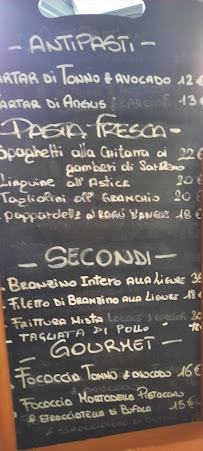 - ANTIPASTI -
TARTAR DI TONNO & AVOCADO 12 €
TARTAR DI ANGUS 13 €
PASTA FRESCA
Spaghetti alla Chitarra ai 22 €
gamberi di SanRemo
Linguine all' Astice 20 €
Tagliolini all' Granchio 20 €
pappardelle al RAGÙ D'ANGUS 18 €
- SECONDI -
- BRANZINO INTERO ALLA LIGURE
- FILETTO DI BRANZINO ALLA LIGURE 18 €
- FRITTURA MISTA 20
- TAGLIATA DI POLLO 18 €
GOURMET -
- FOCACCIA TONNO & AVOCADO 16 €
FOCACCIA MORTADELLA PISTACCHI
& STRACCIATELLA DI BUFALA 15 €